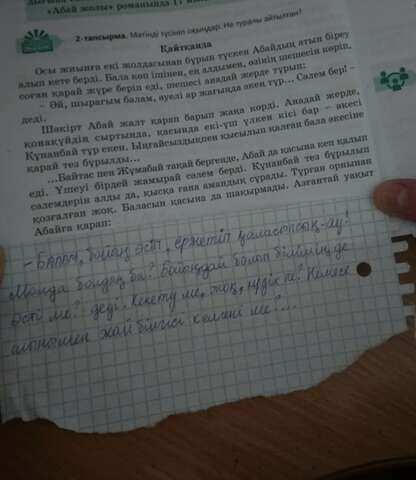 «Абай жолы» романында
2-тапсырма. Мәтінді түсініп оқыңдар. Не туралы айтылған?
Қайтқанда
Осы жиынға екі жолдасынан бұрын түскен Абайдың атын біреу
алып кете берді. Бала көп ішінен, ең алдымен, өзінің шешесін көріп,
соған қарай жүре беріп еді, шешесі анадай жерде тұрып:
– Әй, шырағым балам, әуелі ар жағында әкең тұр... Сәлем бер! –
деді.
Шәкірт Абай жалт қарап барып жаңа көрді. Анадай жерде,
қонақүйдің сыртында, қасында екі-үш үлкен кісі бар – әкесі
Құнанбай тұр екен. Ыңғайсыздықпен қысылып қалған бала әкесіне
қарай тез бұрылды...
...Байтас пен Жұмабай тақай бергенде, Абай да қасына кеп қалып
еді. Үшеуі бірдей жамырай сәлем берді. Құнанбай тез бұрылып
сәлемдерін алды да, қысқа ғана амандық сұрады. Тұрған орнынан
қозғалған жоқ. Баласын қасына да шақырмады. Азғантай уақыт
Абайға қарап:
– Балам, бойың өсіп, ержетіп қалғансың-ау!
Молда болдың ба? Бойыңдай болып білімің де
өсті ме? – деді. Кекету ме, жоқ, күдік пе? Немесе
шынымен жай білгісі келгені ме?...